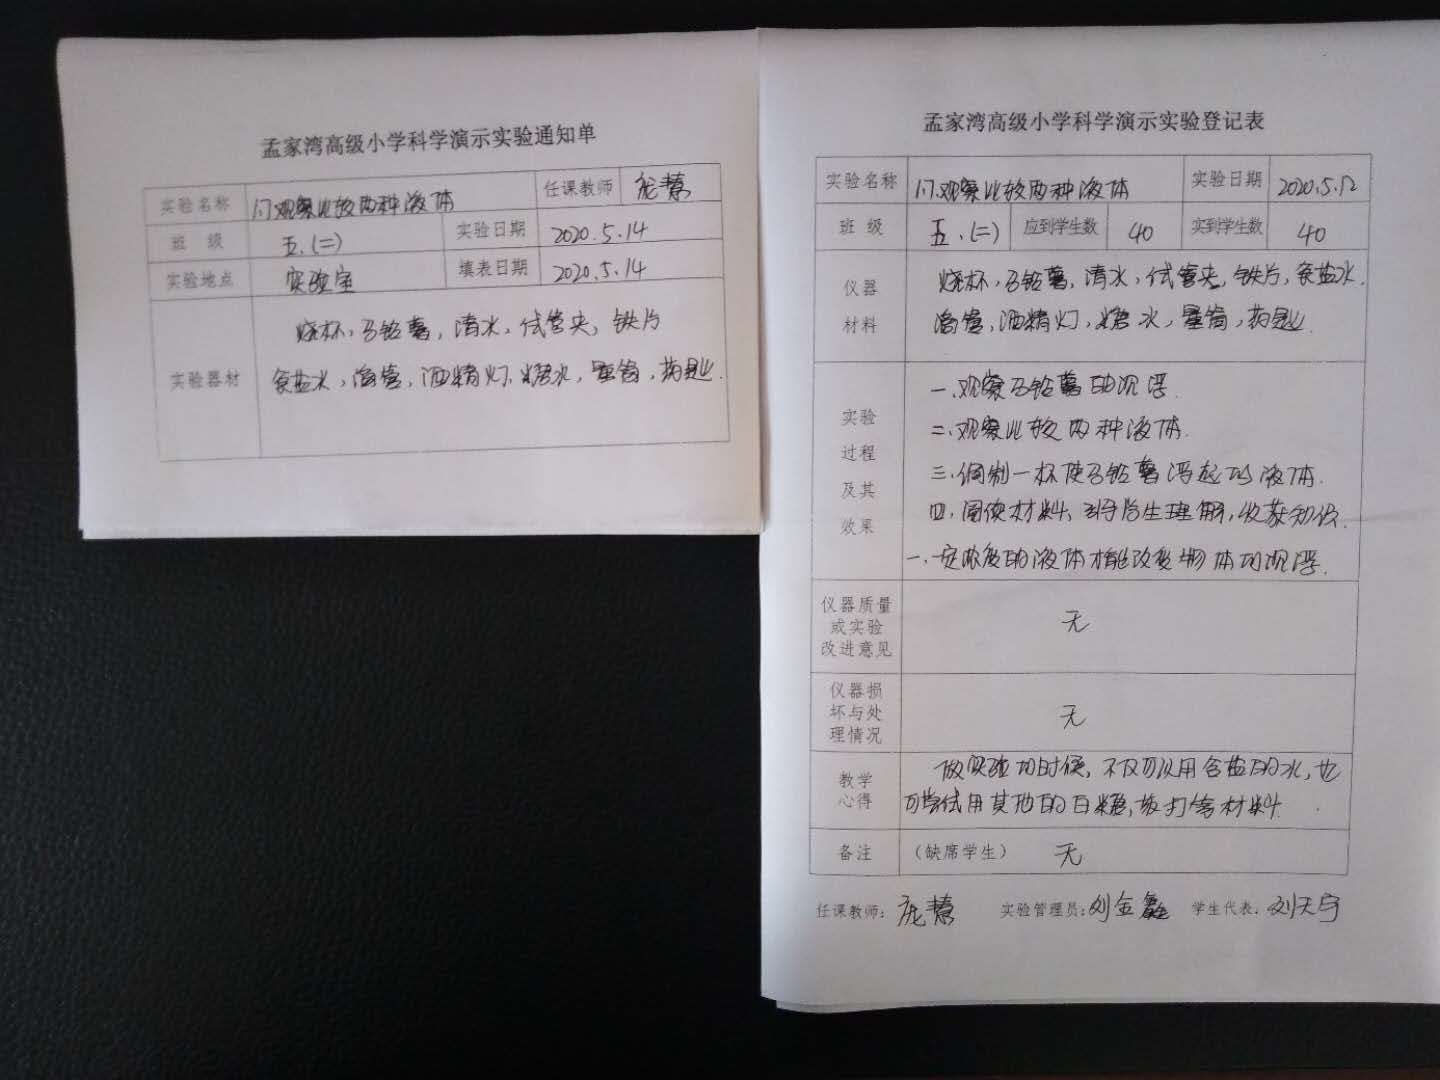 孟家湾高级小学科学演示实验通知单
实验名称 17.观察比较两种液体 任课教师 庞慧
班 级 五.(二) 实验日期 2020.5.14
实验地点 实验室 填表日期 2020.5.14
实验器材 烧杯,马铃薯,清水,试管夹,铁片
食盐水,滴管,酒精灯.糖水,量筒,药匙.
孟家湾高级小学科学演示实验登记表
实验名称 17.观察比较两种液体 实验日期 2020.5.12
班 级 五.(二) 应到学生数 40 实到学生数 40
仪器 烧杯,马铃薯,清水,试管夹,铁片,食盐水.
材料 滴管,酒精灯,糖水,量筒,药匙.
一.观察马铃薯的沉浮.
实验
二.观察比较两种液体.
过程
三.调制一杯使马铃薯浮起的液体.
及其
四.阅读材料,指导学生理解,收获知识.
效果
一.一定浓度的液体才能改变物体的沉浮.
仪器质量
或实验 无
改进意见
仪器损
坏与处 无
理情况
教学 做实验的时候,不仅可以用含盐的水,也
心得 可尝试用其他的白糖,苏打等材料.
备注 (缺席学生) 无
任课教师: 庞慧 实验管理员: 刘金鑫 学生代表: 刘天宇